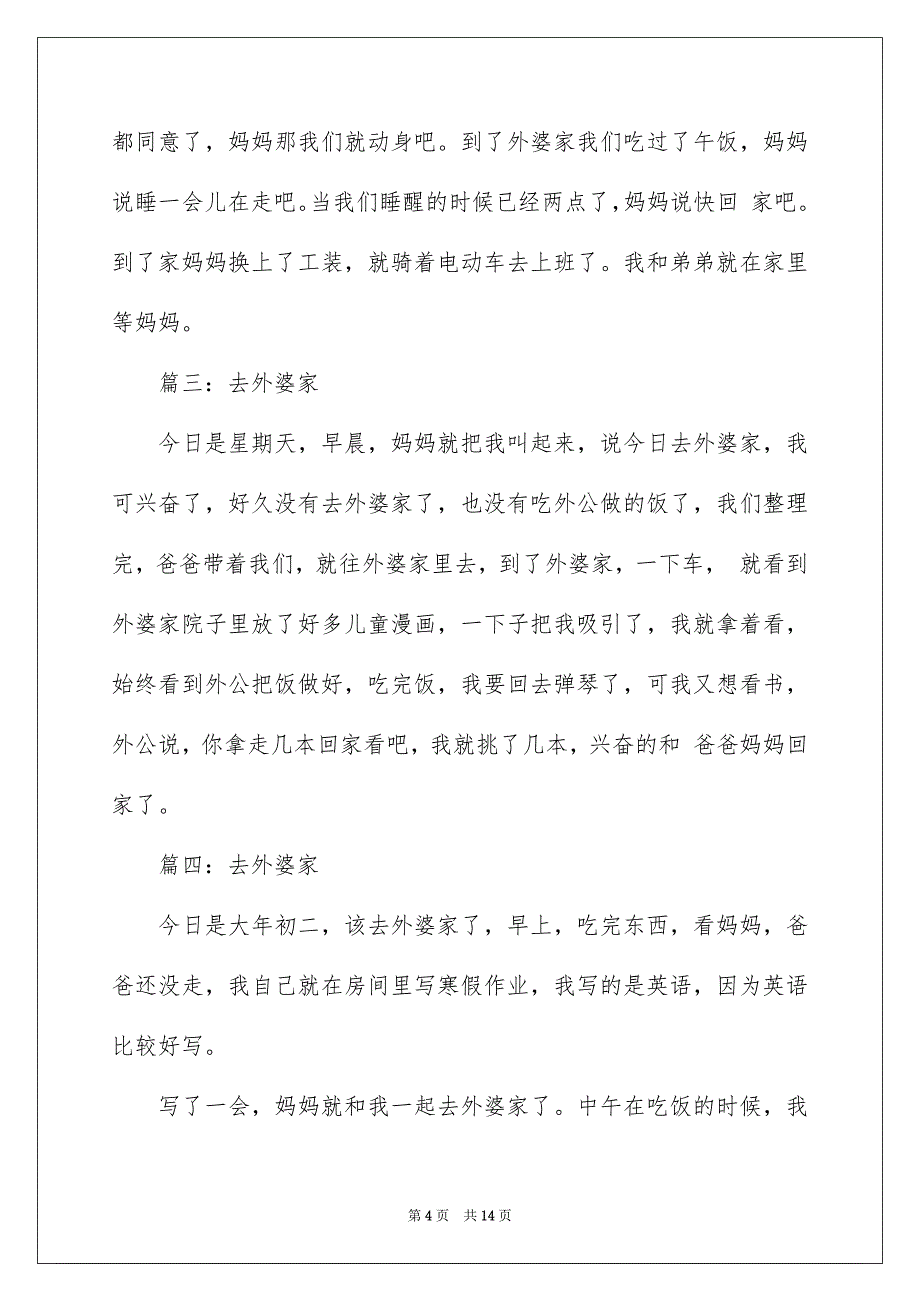 都同意了，妈妈那我们就动身吧。到了外婆家我们吃过了午饭，妈妈
说睡一会儿在走吧。当我们睡醒的时候已经两点了，妈妈说快回 家吧。
到了家妈妈换上了工装，就骑着电动车去上班了。我和弟弟就在家里
等妈妈。
篇三：去外婆家
今日是星期天，早晨，妈妈就把我叫起来，说今日去外婆家，我
可兴奋了，好久没有去外婆家了，也没有吃外公做的饭了，我们整理
完，爸爸带着我们，就往外婆家里去，到了外婆家，一下车， 就看到
外婆家院子里放了好多儿童漫画，一下子把我吸引了，我就拿着看，
始终看到外公把饭做好，吃完饭，我要回去弹琴了，可我又想看书，
外公说，你拿走几本回家看吧，我就挑了几本，兴奋的和 爸爸妈妈回
家了。
篇四：去外婆家
今日是大年初二，该去外婆家了，早上，吃完东西，看妈妈，爸
爸还没走，我自己就在房间里写寒假作业，我写的是英语，因为英语
比较好写。
写了一会，妈妈就和我一起去外婆家了。中午在吃饭的时候，我
第 4 页 共 14 页